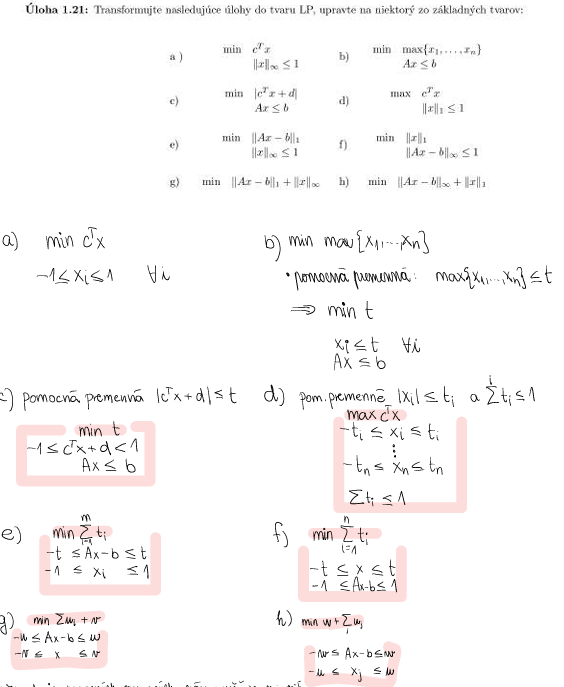 Úloha 1.21: Transformujte nasledujúce úlohy do tvaru LP, upravte na niektorý zo základných tvarov:
a ) min c^T x b) min max{x_1, …, x_n}
‖x‖_∞ ≤ 1 Ax ≤ b
c) min |c^T x + d| d) max c^T x
Ax ≤ b ‖x‖_1 ≤ 1
e) min ‖Ax − b‖_1 f) min ‖x‖_1
‖x‖_∞ ≤ 1 ‖Ax − b‖_∞ ≤ 1
g) min ‖Ax − b‖_1 + ‖x‖_∞ h) min ‖Ax − b‖_∞ + ‖x‖_1
a) min c^T x
−1 ≤ x_i ≤ 1 ∀i
b) min max{x_1, ..., x_n}
• pomocná premenná: max{x_1, ..., x_n} ≤ t
⇒ min t
x_i ≤ t ∀i
Ax ≤ b
c) pomocná premenná |c^T x + d| ≤ t
min t
−1 ≤ c^T x + d < 1
Ax ≤ b
d) pom. premenné |x_i| ≤ t_i a ∑^i t_i ≤ 1
max c^T x
−t_i ≤ x_i ≤ t_i
⋮
−t_n ≤ x_n ≤ t_n
∑ t_i ≤ 1
e) min ∑_{i=1}^m t_i
−t ≤ Ax−b ≤ t
−1 ≤ x_i ≤ 1
f) min ∑_{i=1}^n t_i
−t ≤ x ≤ t
−1 ≤ Ax-b ≤ 1
g) min ∑u_i + v
−u ≤ Ax−b ≤ u
−v ≤ x ≤ v
h) min w + ∑_i u_i
−w ≤ Ax−b ≤ w
−u ≤ x_j ≤ u